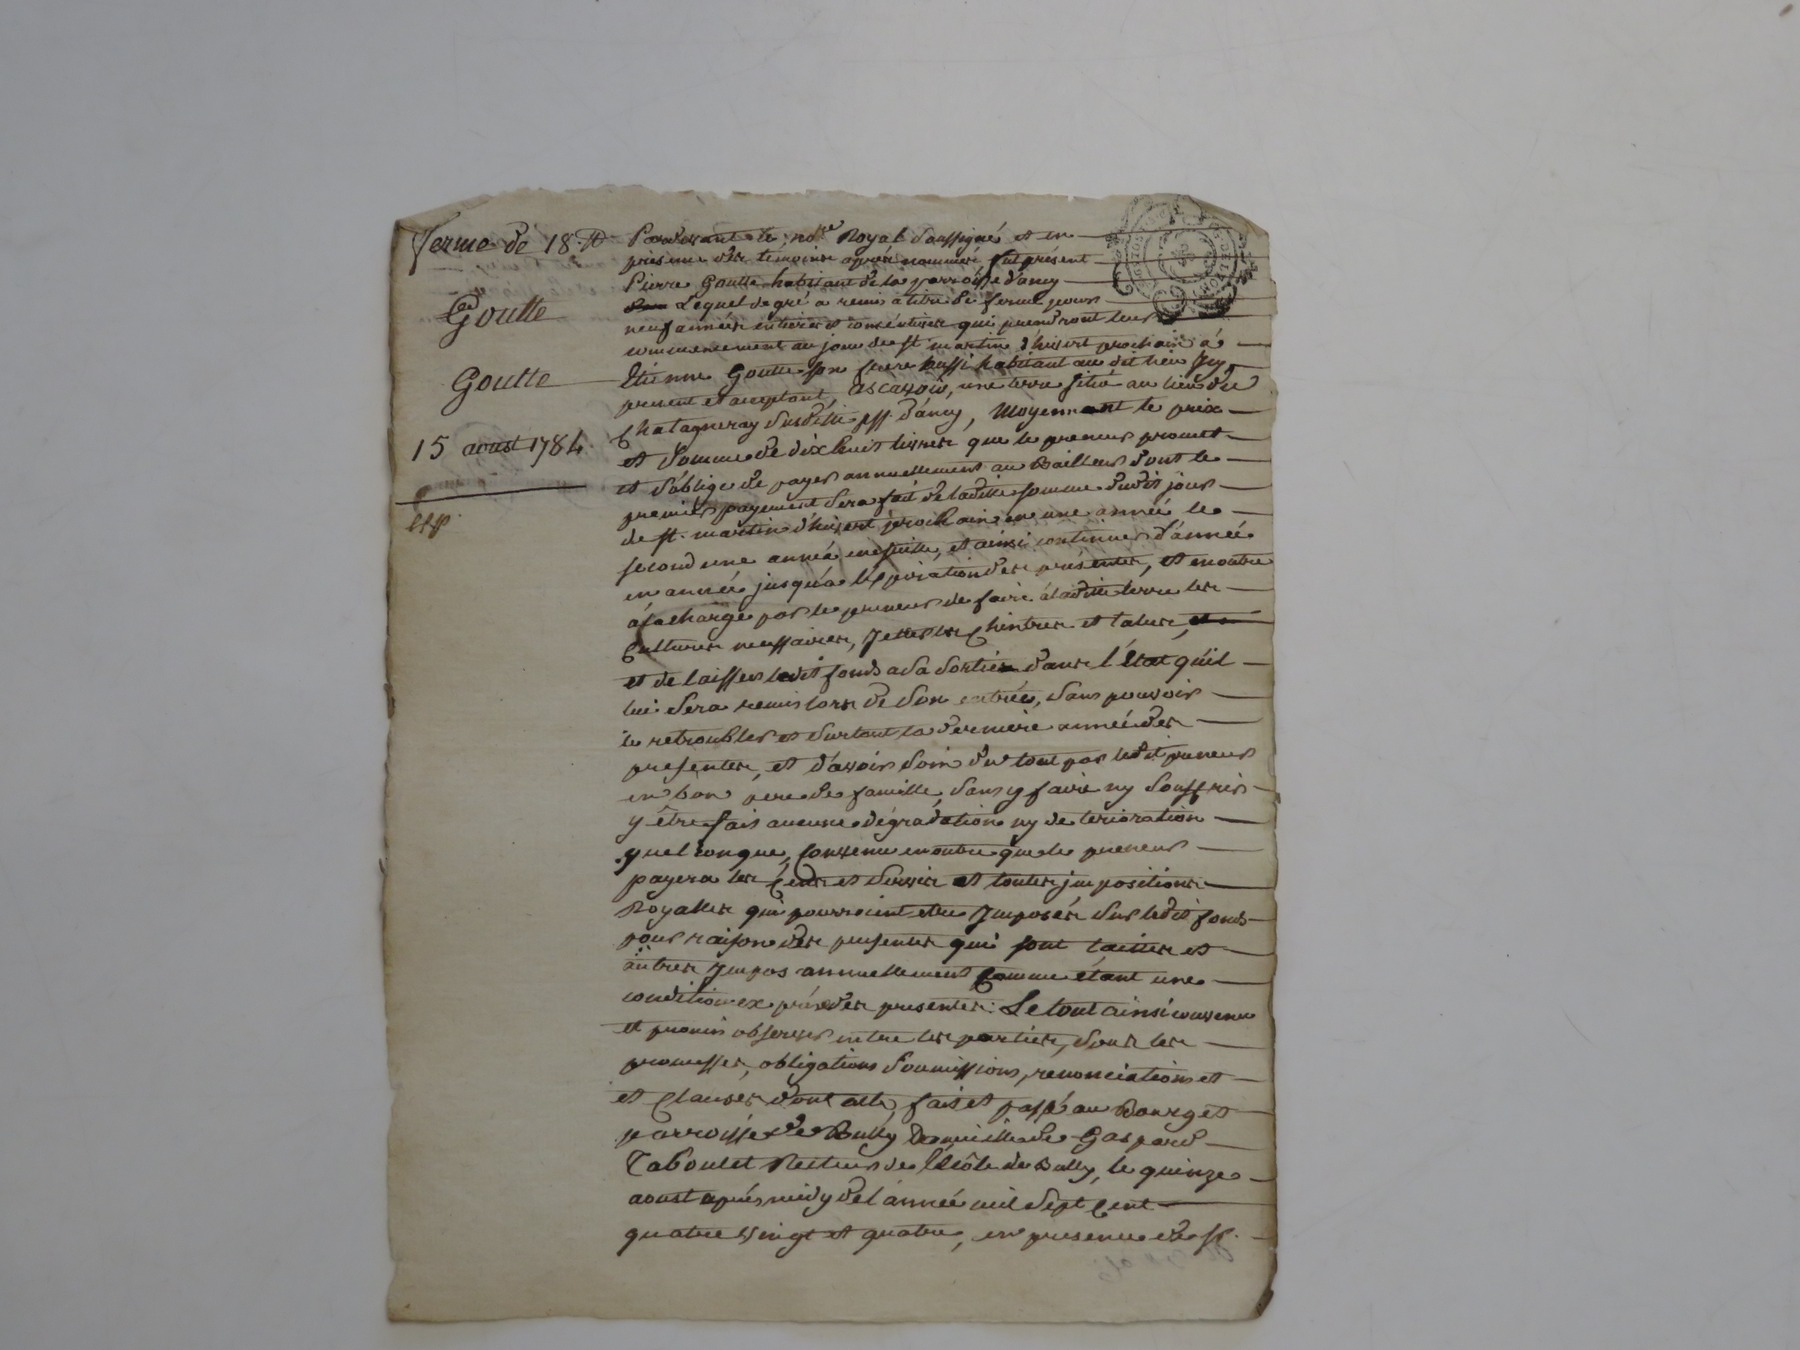 ferme de 18 ₶
Goutte
Goutte
15 aoust 1784
Pardevant le no.re Royal soussigné et en
presence des témoins après nommés fut présent
Pierre Goutte habitant de la parroisse d'ancy
Lequel de gré a remi a titre de ferme pour
neuf années entieres et consécutives qui prendront leur
commencement au jour de st martin d'hivert prochain à
Etienne Goutte son frere aussi habitant au dit lieu Jcy
present et acceptant, ascavoir, une terre sitüé au lieu du
Chatagneray susditte psse d'ancy, Moyennant le prix
et somme de dix huit livres que le preneur promet
et s'oblige de payer annuellement au Bailleur dont le
premier payement sera fait de laditte somme dudit jour
de st. martin d'hivert prochain en une année le
second une année ensuitte, et ainsi continuer d'année
en année jusqu'a l'expiration des présentes, et en outre
à la charge par le preneur de faire à laditte terre les
Cultures necessaires, Jetter les Chintres et talus,
et de laisser ledit fonds a sa sortie dans l'état qu'il
lui sera remis lors de son entrée, sans pouvoir
le retroubler et surtout la derniere année des
presentes, et d'avoir soin du tout par ledit preneur
en bon pere de famille, sans y faire ny souffrir
y être fait aucune dégradation ny deterioration
quelconque, Convenu en outre que le preneur
payera les Cens et servis et toutes jmpositions
Royalles qui pourroient etre Jmposés sur ledit fonds
pour raison des presentes qui sont tailles et
autres Jmpos annuellement Comme étant une
condition expresse des presentes: Le tout ainsi convenu
et promis observer entre les parties, sous les
promesses, obligations soumissions, renonciations et
et Clauses dont acte, fait et passé au Bourg et
parroisse de Bully Domicille de Gaspard
Taboulet Recteur de l'école de Bully, le quinze
aoust après midy de l'année mil sept Cent
quatre vingt et quatre, en presence de sr.